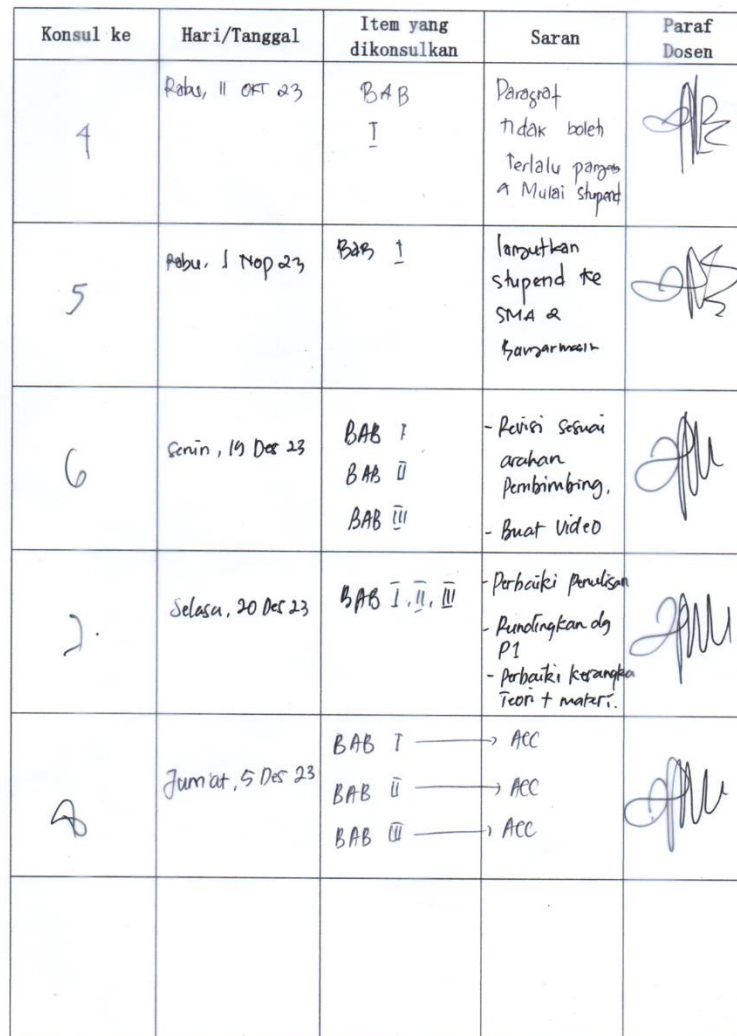 Konsul ke Hari/Tanggal Item yang dikonsulkan Saran Paraf Dosen
4
Rabu, 11 OKT 23
BAB
I
Paragraf
tidak boleh
terlalu
& Mulai stupend
5
Rabu, 1 Nop 23
BAB I
lanjutkan
stupend ke
SMA 2
Banjarmasin
6
Senin, 19 Des 23
BAB I
BAB II
BAB III
- Revisi sesuai
arahan
Pembimbing.
- Buat Video
7.
Selasa, 20 Des 23
BAB I, II, III
- Perbaiki Penulisan
- Rundingkan dg
P1
- Perbaiki kerangka
Teori + materi.
8
Jum'at, 5 Des 23
BAB I → ACC
BAB II → ACC
BAB III → ACC